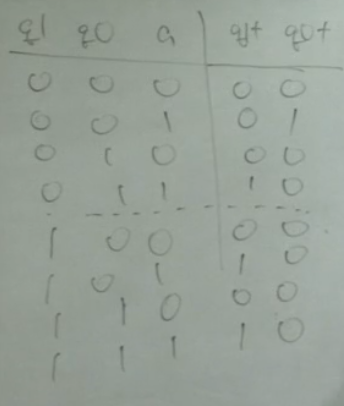 q1 q0 a q1+ q0+
0 0 0 0 0
0 0 1 0 1
0 1 0 0 0
0 1 1 1 0
1 0 0 0 0
1 0 1 1 0
1 1 0 0 0
1 1 1 1 0